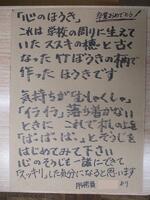 「心のほうき」
卒業おめでとう!
これは学校の周りに生えて
いたススキの穂と古く
なった竹ぼうきの柄で
作ったほうきです
気持ちが生しゃくしゃ。
「イライラ」落ち着かない
ときに これで机の上を
「ぱっぱっ。」とそうじを
はじめてみて下さい
心のそうじも一諸にできて
「スッキリ」した気分になると思います
より